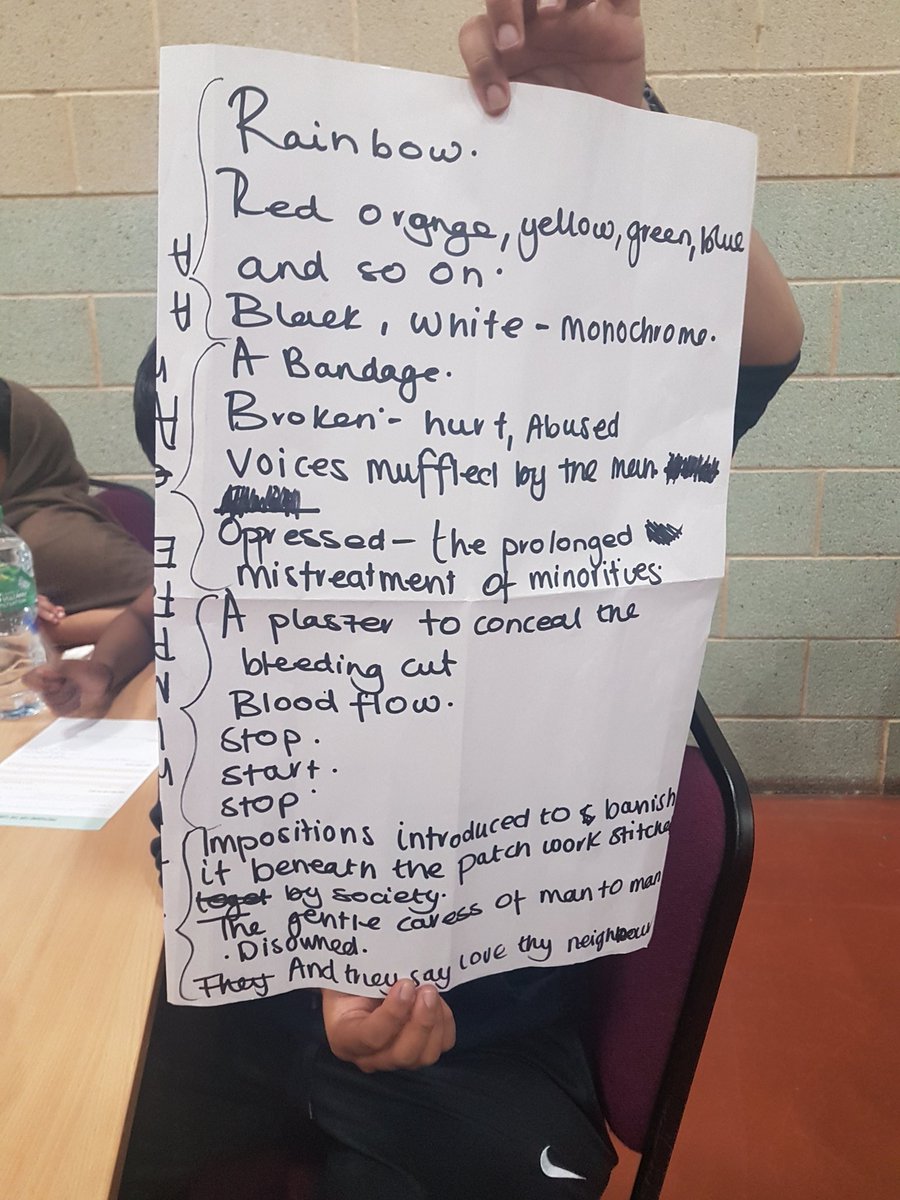 Rainbow.
Red orgnge, yellow, green, blue
and so on.
Black, white - monochrome.
A Bandage.
Broken - hurt, Abused
Voices muffled by the man
Oppressed - the prolonged
mistreatment of minoritives.
A plaster to conceal the
bleeding cut
Blood flow.
stop.
start.
stop
Impositions introduced to banish
it beneath the patch work stitched
toget by society.
The gentle caress of man to man
. Disowned.
They And they say love thy neighbour